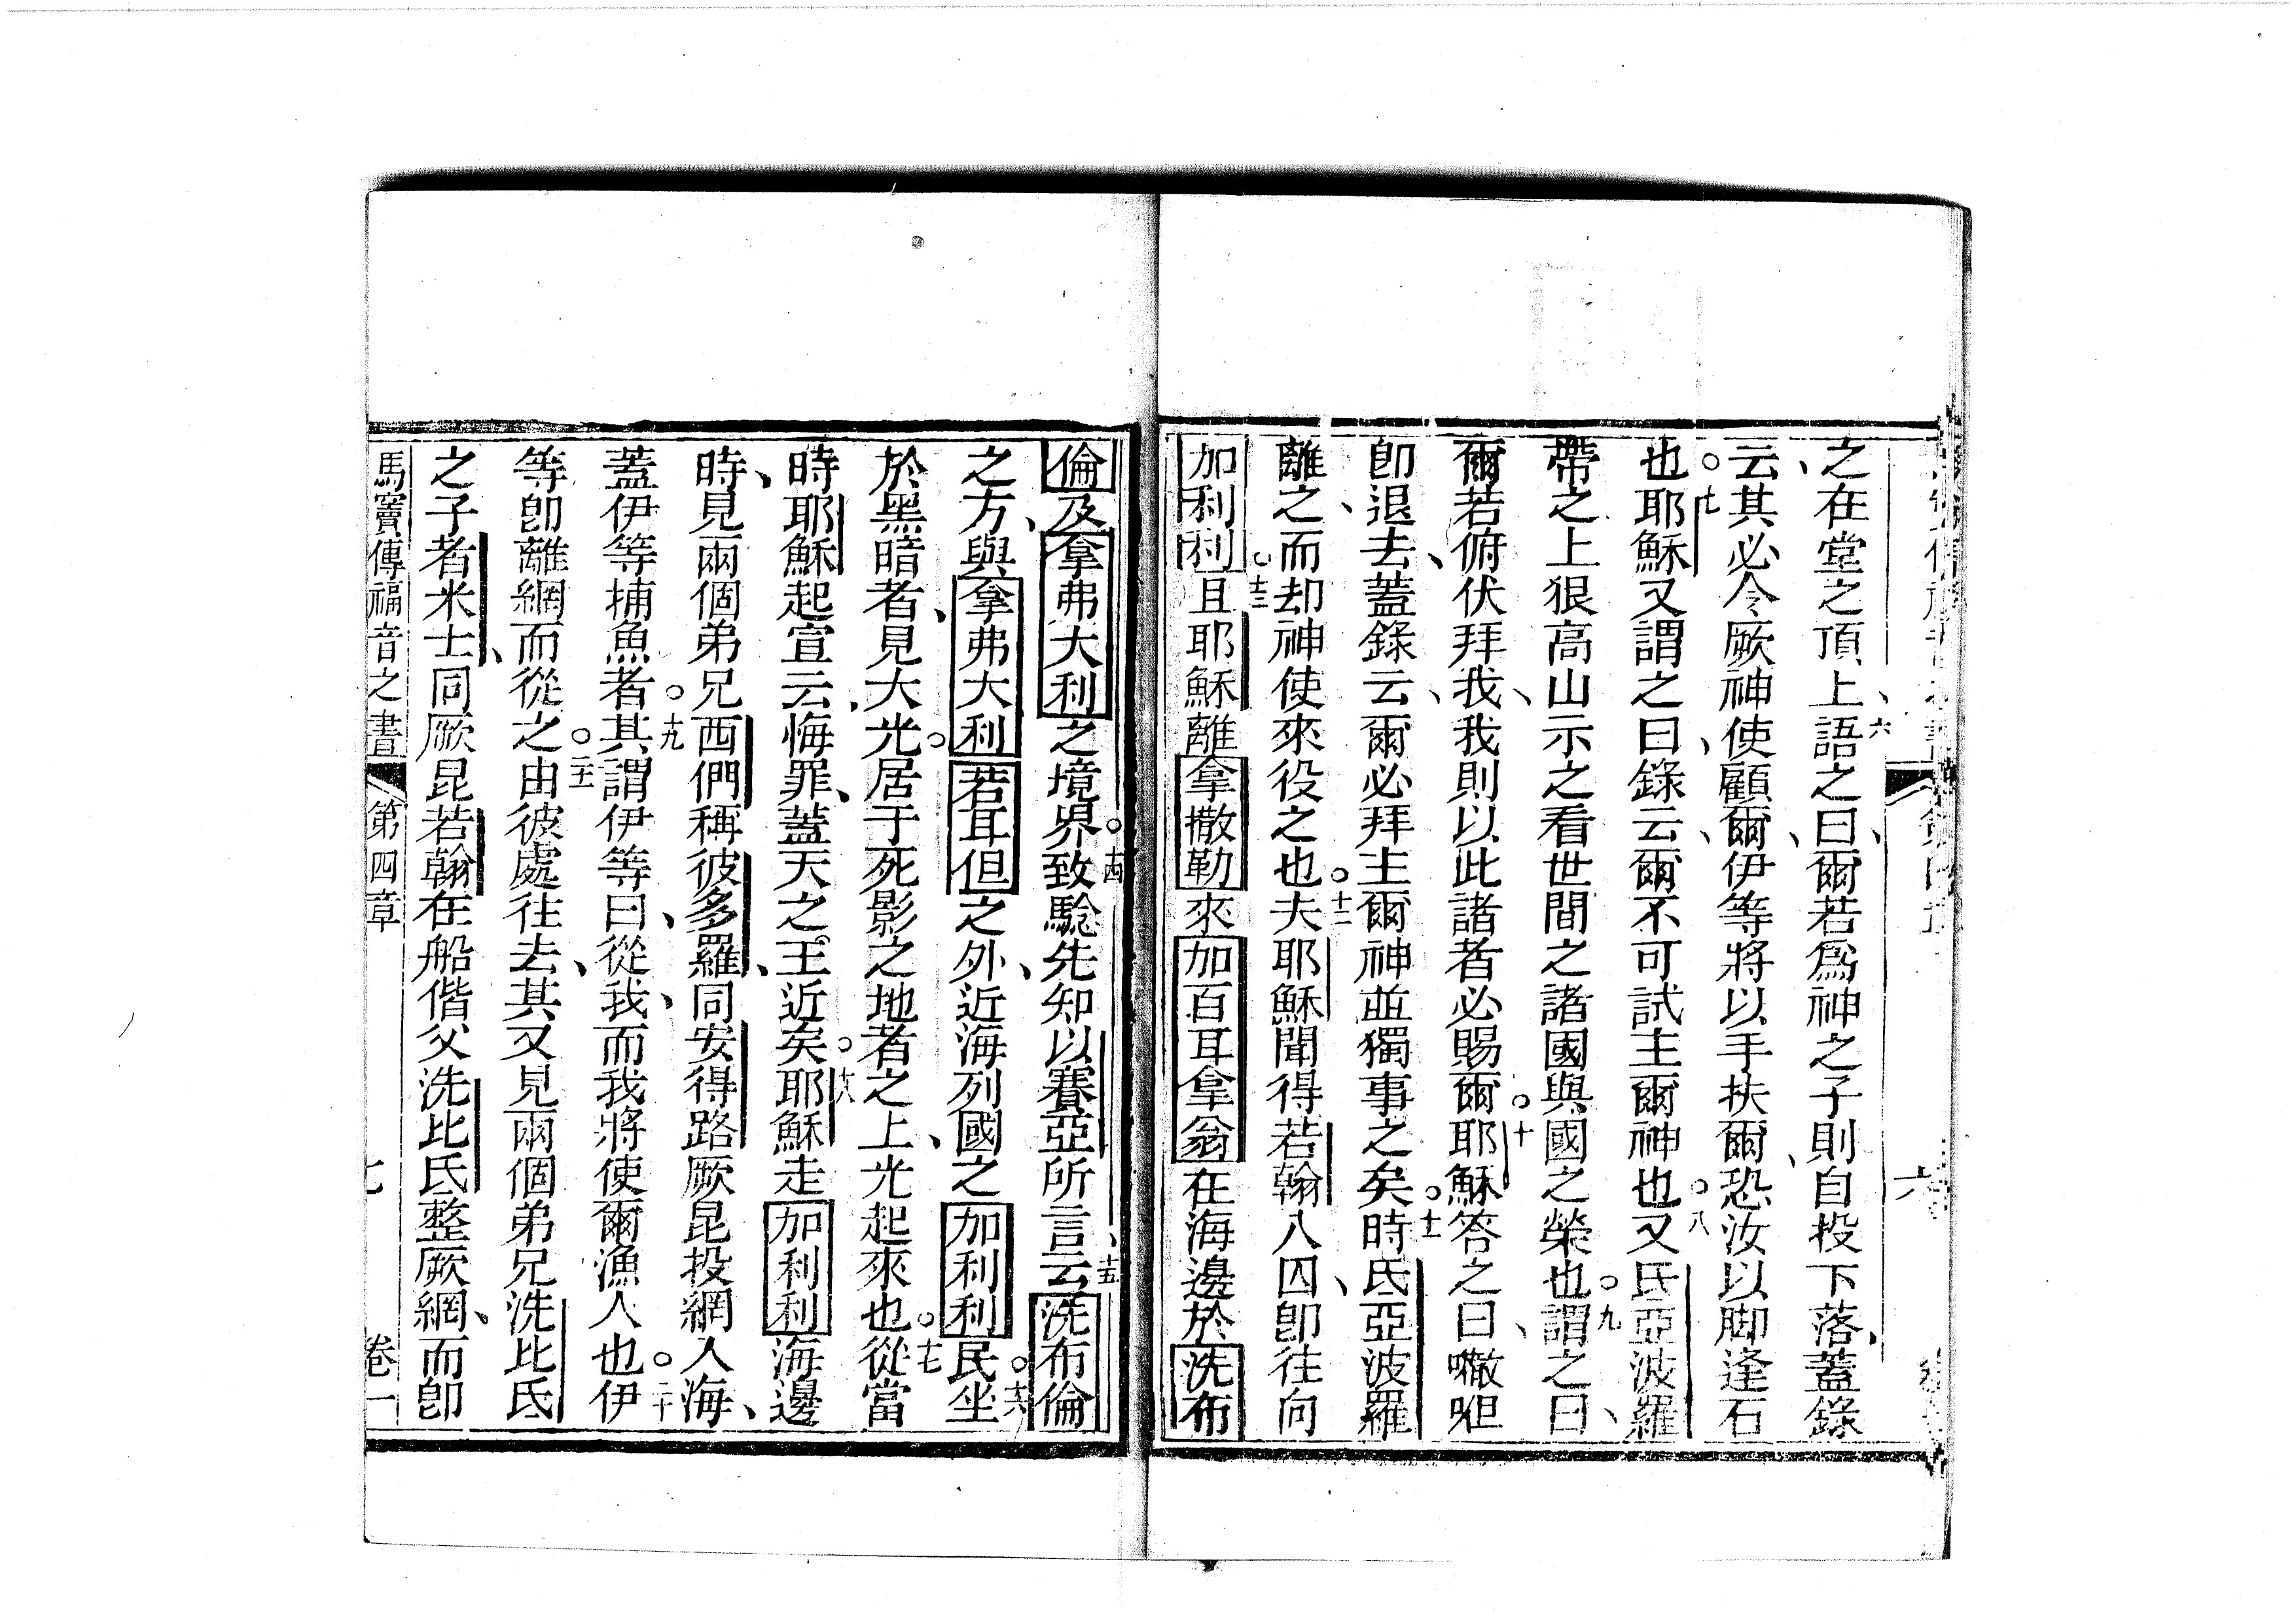 之在堂之頂上、六語之曰、爾若爲神之子則自投下落、蓋錄
云、其必令厥神使顧爾、伊等將以手扶爾、恐汝以脚逢石
也。七耶穌又謂之曰、錄云、爾不可試主爾神也。八又氐亞波羅
帶之上狠高山示之看世間之諸國與國之榮也。九謂之曰、
爾若俯伏拜我、我則以此諸者必賜爾。十耶穌答之曰、㘚呾
卽退去、蓋錄云、爾必拜主爾神並獨事之矣。十一時氐亞波羅
離之、而却神使來役之也。十二夫耶穌聞得若翰入囚、卽往向
加利利。十三且耶穌離拿撒勒來加百耳拿翁在海邊於洗布
六
倫及拿弗大利之境界。十四致騐先知以賽亞所言云、十五洗布倫
之方、與拿弗大利若耳但之外、近海列國之加利利。十六民坐
於黑暗者、見大光。居于死影之地者之上、光起來也。十七從當
時耶穌起宣云、悔罪、蓋天之王近矣。十八耶穌走加利利海邊
時、見兩個弟兄西們稱彼多羅、同安得路厥昆投網入海、
蓋伊等捕魚者。十九其謂伊等曰、從我、而我將使爾漁人也。二十伊
等卽離網而從之。二十一由彼處往去、其又見兩個弟兄洗比氐
之子者米士、同厥昆若翰在船偕父洗比氐整厥網、而卽
馬竇傳福音之書 第四章 七 卷一